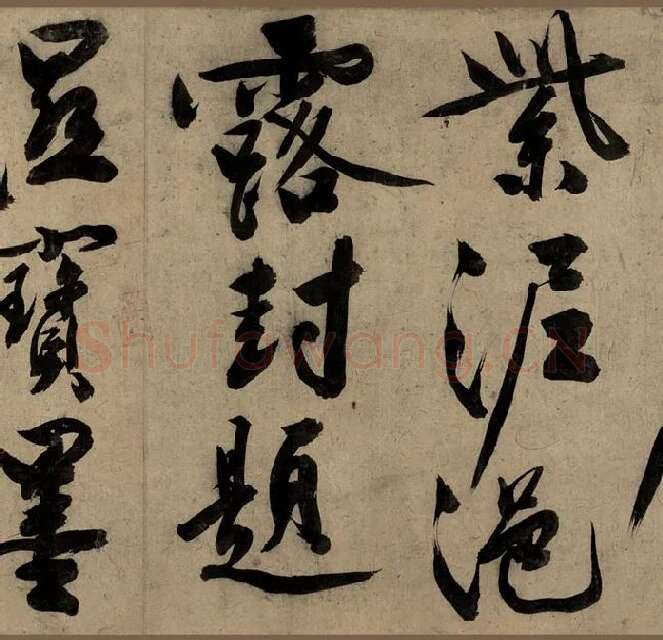 紫泥浥
露封題
濕寶墨
Shufawang.CN